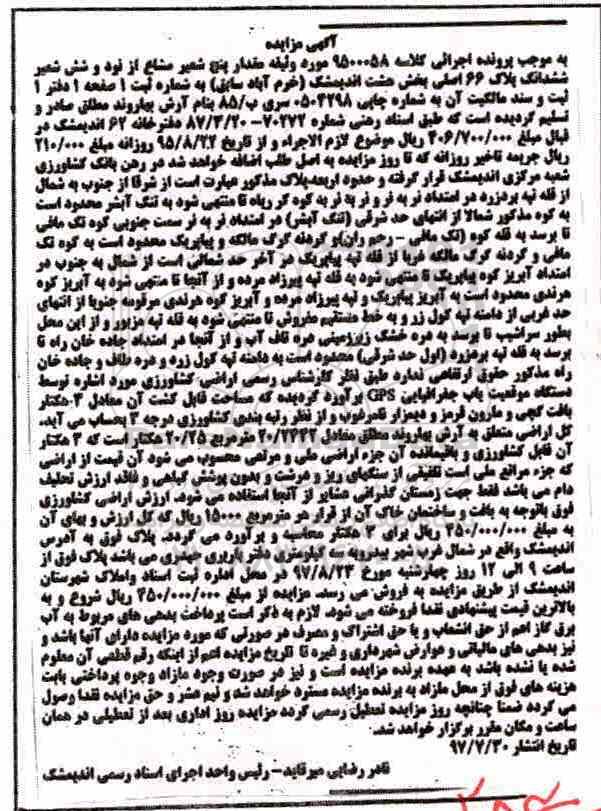 آگهی مزایده
به موجب پرونده اجرائی کلاسه 9500058 مورد وثیقه مقدار پنج شعیر مشاع از نود و شش شعیر
ششدانگ پلاک 66 اصلی بخش هشت اندیمشک (خرم آباد سابق) به شماره ثبت 1 صفحه 1 دفتر 1
ثبت و سند مالکیت آن به شماره چاپی 0504298 سری ب/85 بنام آرش بهاروند مطلق صادر و
تسلیم گردیده است که طبق اسناد رهنی شماره 70272- 87/3/20 دفترخانه 62 اندیمشک در
قبال مبلغ 306/700/000 ریال موضوع لازم الاجراء و از تاریخ 95/8/22 روزانه مبلغ 210/000
ریال جریمه تاخیر روزانه که تا روز مزایده به اصل طلب اضافه خواهد شد در رهن بانک کشاورزی
شعبه مرکزی اندیمشک قرار گرفته و حدود اربعه پلاک مذکور عبارت است از شرقا از جنوب به شمال
از قله تپه بردزرد در امتداد نر به فر و نر به نر به کوه گر رپاه تا منتهی شود به تنگ آبشر محدود است
به کوه مذکور شمالا از انتهای حد شرقی (تنگ آبشر) در امتداد نر به نر سمت جنوبی کوه تک مافی
تا برسد به قله کوه (تک مافی - رحم ران)و گردنه گرگ مالگه و پیاپریک محدود است به کوه تک
مافی و گردنه گرگ مالگه غربا از قله تپه پیاپریک در آخر حد شمالی است از شمال به جنوب در
امتداد آبریز کوه پیاپریک تا منتهی شود به قله تپه پیرزاد مرده و از آنجا تا منتهی شود به آبریز کوه
هرندی محدود است به آبریز پیاپریک و تپه پیرزاد مرده و آبریز کوه هرندی مرقومه جنوبا از انتهای
حد غربی از دامنه تپه کول زر و به خط مستقیم مفروش تا منتهی شود به قله تپه مزبور و از این محل
بطور سراشیب تا برسد به دره خشک زیرزمینی دره قاف آب و از آنجا در امتداد جاده خان راه تا
برسد به قله تپه بردزرد (اول حد شرقی) محدود است به دامنه تپه کول زرد و دره طاف و جاده خان
راه مذکور حقوق ارتفاقی ندارد طبق نظر کارشناس رسمی اراضی کشاورزی مورد اشاره توسط
دستگاه موقعیت یاب جغرافیایی GPS برآورد گردیده که مساحت قابل کشت آن معادل 3 هکتار
بافت گچی و مارون قرمز و دیمزار نامرغوب و از نظر رتبه بندی کشاورزی درجه 3 بحساب می آید.
کل اراضی متعلق به آرش بهاروند مطلق معادل 20/2443 مترمربع 20/25 هکتار است که 3 هکتار
آن قابل کشاورزی و باقیمانده آن جزء اراضی ملی و مرتعی محسوب می شود آن قیمت از اراضی
که جزء مراتع ملی است تلفیقی از سنگهای ریز و درشت و بدون پوشش گیاهی و فاقد ارزش تعلیف
دام می باشد فقط جهت زمستان گذرانی عشایر از آنجا استفاده می شود. ارزش اراضی کشاورزی
فوق باتوجه به بافت و ساختمان خاک آن از قرار هر مترمربع 15000 ریال که کل ارزش و بهای آن
به مبلغ 450/000/000 ریال برای 3 هکتار محاسبه و برآورد می گردد. پلاک فوق به آدرس
اندیمشک واقع در شمال غرب شهر بیدروبه سه کیلومتری دفتر باربری حیدری می باشد پلاک فوق از
ساعت 9 الی 12 روز چهارشنبه مورخ 97/8/23 در محل اداره ثبت اسناد واملاک شهرستان
اندیمشک از طریق مزایده به فروش می رسد. مزایده از مبلغ 450/000/000 ریال شروع و به
بالاترین قیمت پیشنهادی نقدا فروخته می شود. لازم به ذکر است پرداخت بدهی های مربوط به آب
برق گاز اعم از حق انشعاب و یا حق اشتراک و مصرف در صورتی که مورد مزایده دارای آنها باشد و
نیز بدهی های مالیاتی و عوارض شهرداری و غیره تا تاریخ مزایده اعم از اینکه رقم قطعی آن معلوم
شده یا نشده باشد به عهده برنده مزایده است و نیز در صورت وجود مازاد وجوه پرداختی بابت
هزینه های فوق از محل مازاد به برنده مزایده مسترد خواهد شد و نیم عشر و حق مزایده نقدا وصول
می گردد ضمنا چنانچه روز مزایده تعطیل رسمی گردد مزایده روز اداری بعد از تعطیلی در همان
ساعت و مکان مقرر برگزار خواهد شد.
تاریخ انتشار 97/7/30
نادر رضایی میرقاید- رئیس واحد اجرای اسناد رسمی اندیمشک